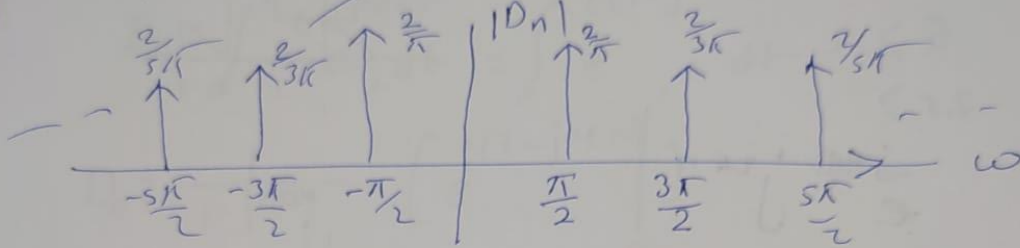 |Dn|
2/5π 2/3π 2/π 2/π 2/3π 2/5π
-5π/2 -3π/2 -π/2 π/2 3π/2 5π/2 ω